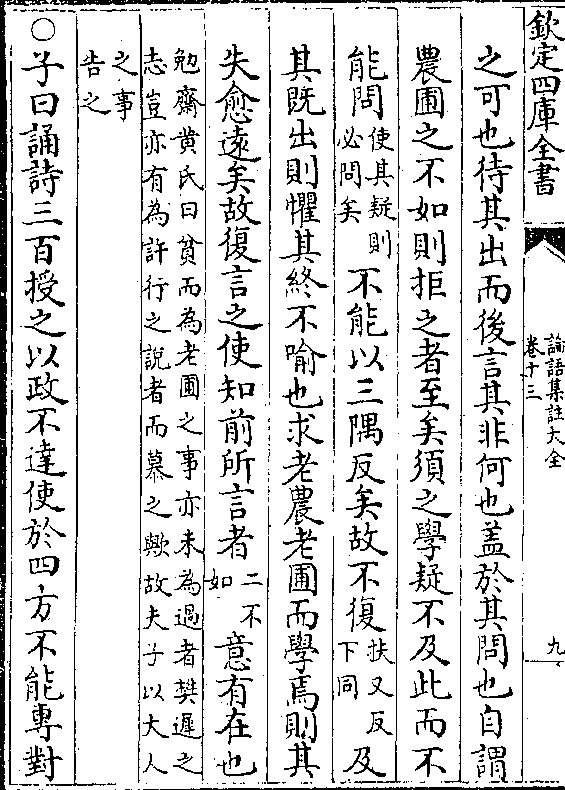 欽定四庫全書
論語集註大全
卷十三
九
之可也待其出而後言其非何也盖於其問也自謂
農圃之不如則拒之者至矣須之學疑不及此而不
能問
使其疑則
必問矣
不能以三隅反矣故不復
扶又反
下同
及
其既出則懼其終不喻也求老農老圃而學焉則其
失愈遠矣故復言之使知前所言者
二不
如
意有在也
勉齋黄氏曰貧而為老圃之事亦未為過者樊遲之
志豈亦有為許行之說者而慕之歟故夫子以大人
之事
告之
○子曰誦詩三百授之以政不達使於四方不能專對